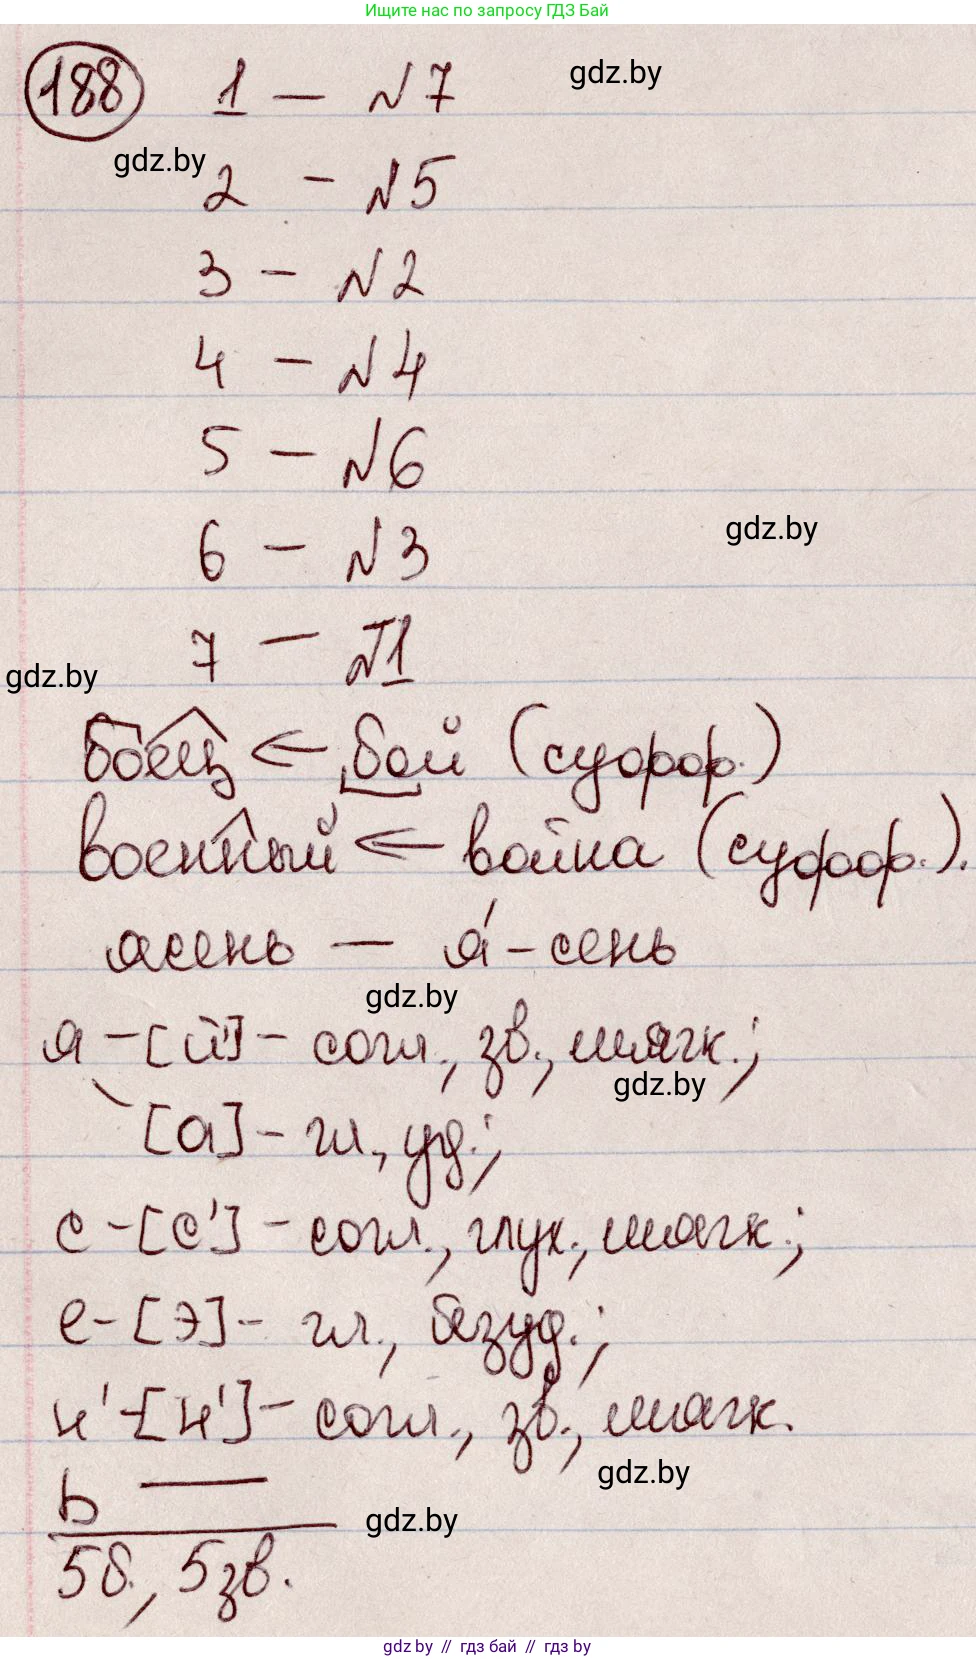 Ищите нас по запросу ГДЗ Бай
188 1 – №7
gdz.by
gdz.by
2 – №5
3 – №2
4 – №4
5 – №6
gdz.by
6 – №3
7 – №1
gdz.by
боец ← бой (суфф.)
военный ← война (суфф.).
ясень – я́-сень
gdz.by
я – [й'] – согл., зв., мягк.;
gdz.by
\ [а] – гл., уд.;
с – [с'] – согл., глух., мягк.;
е – [э] – гл., безуд.;
н' – [н'] – согл., зв., мягк.
gdz.by
ь —
gdz.by
5б., 5зв.
gdz.by // гдз бай // гдз by